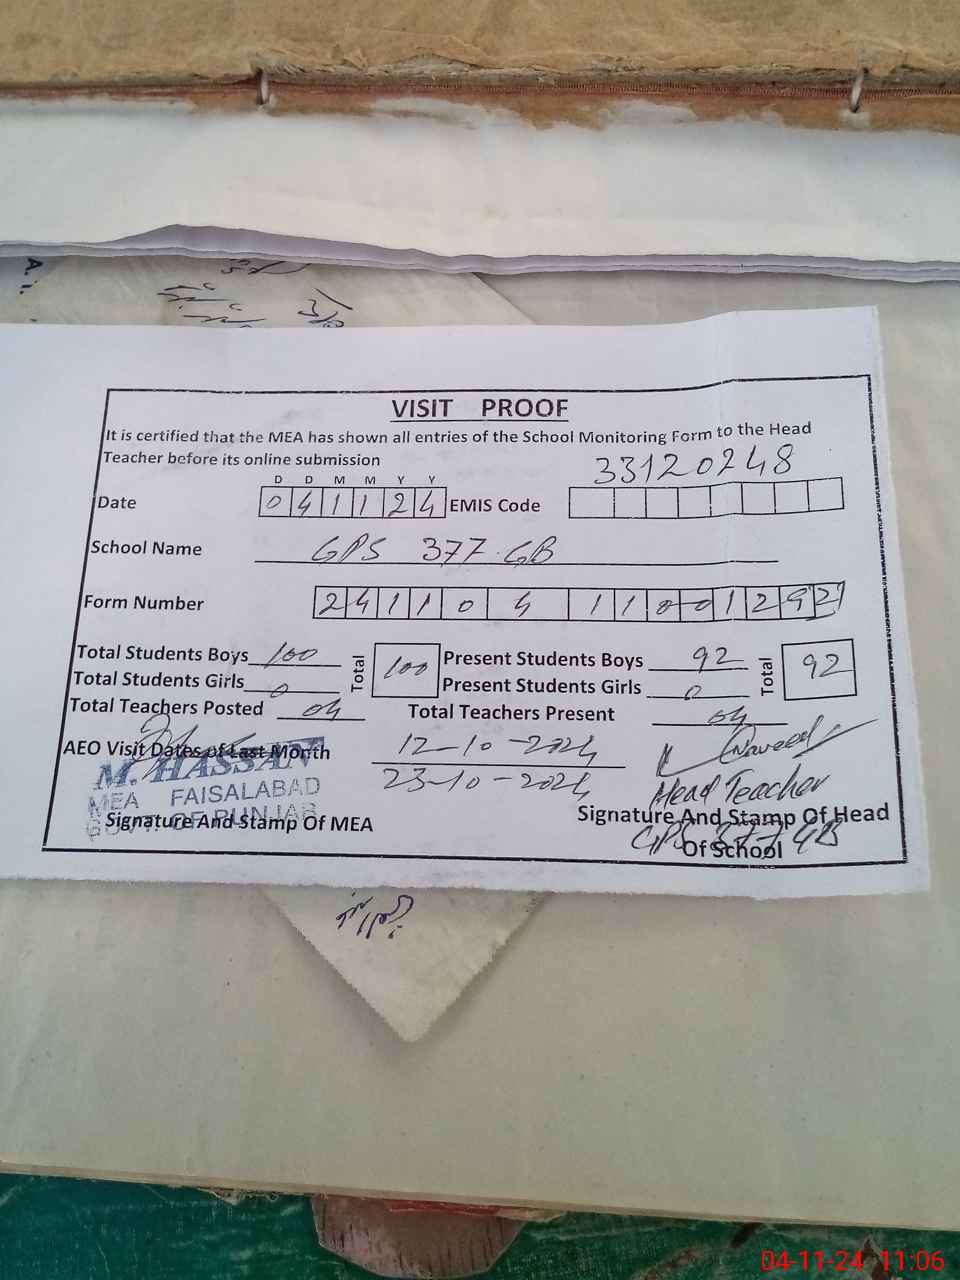 VISIT PROOF
It is certified that the MEA has shown all entries of the School Monitoring Form to the Head
Teacher before its online submission
33120248
D D M M Y Y
Date 041124 EMIS Code
School Name GPS 377 GB
Form Number 24110411001292
Total Students Boys 100 Total 100 Present Students Boys 92 Total 92
Total Students Girls 0 Present Students Girls 0
Total Teachers Posted 04 Total Teachers Present 04
AEO Visit Dates of Last Month 12-10-2024
23-10-2024
M. HASSAN
MEA FAISALABAD
GOVT. OF PUNJAB
Signature And Stamp Of MEA
Naveed
Head Teacher
GPS 377 GB
Signature And Stamp Of Head
Of School
04-11-24 11:06